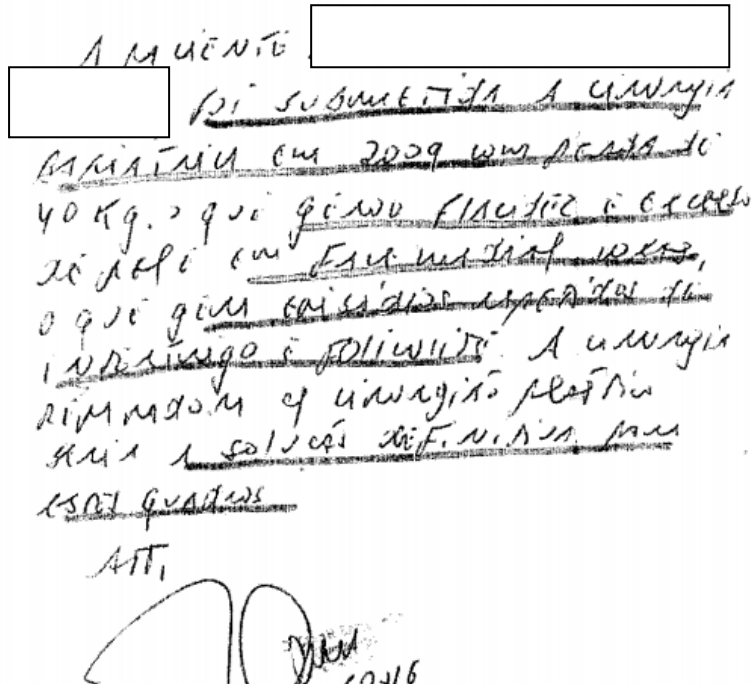 A paciente
foi submetida a cirurgia
bariátrica em 2009 com perda de
40 Kg. o que gerou flacidez e excesso
de pele em face medial coxas,
o que gera episódios repetidos de
intertrigo e foliculite. A cirurgia
reparadora c/ cirurgião plástico
seria a solução definitiva para
estes quadros
Att,